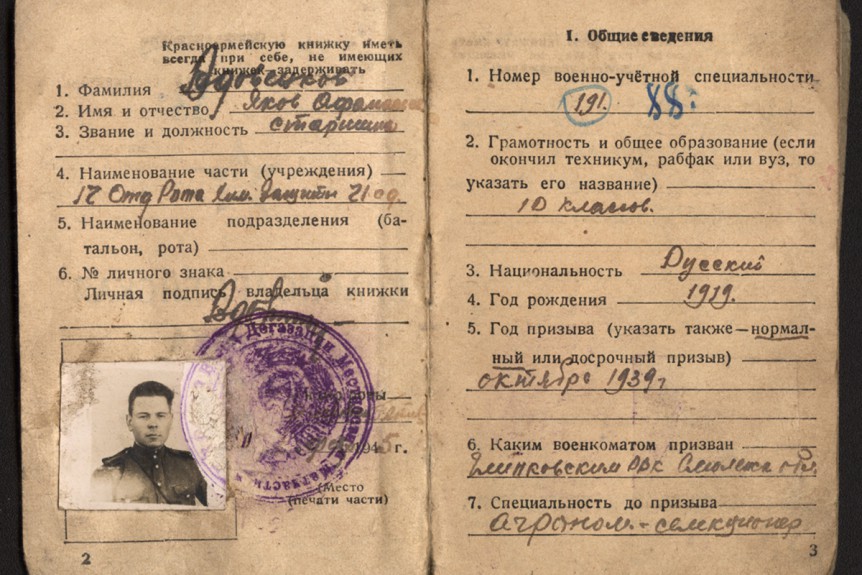 Красноармейскую книжку иметь
всегда при себе, не имеющих
книжек задерживать
1. Фамилия
2. Имя и отчество Яков
3. Звание и должность старшина
4. Наименование части (учреждения)
17 Отд Рота хим. защиты 21
5. Наименование подразделения (ба-
тальон, рота)
6. № личного знака
Личная подпись владельца книжки
1945 г.
(Место
печати части)
2
I. Общие сведения
1. Номер военно-учётной специальности
191. 88:
2. Грамотность и общее образование (если
окончил техникум, рабфак или вуз, то
указать его название)
10 классов.
3. Национальность Русский
4. Год рождения 1919.
5. Год призыва (указать также—нормал-
ный или досрочный призыв)
октябрь 1939г
6. Каким военкоматом призван
РВК Смоленск обл
7. Специальность до призыва
Агроном-селекционер
3